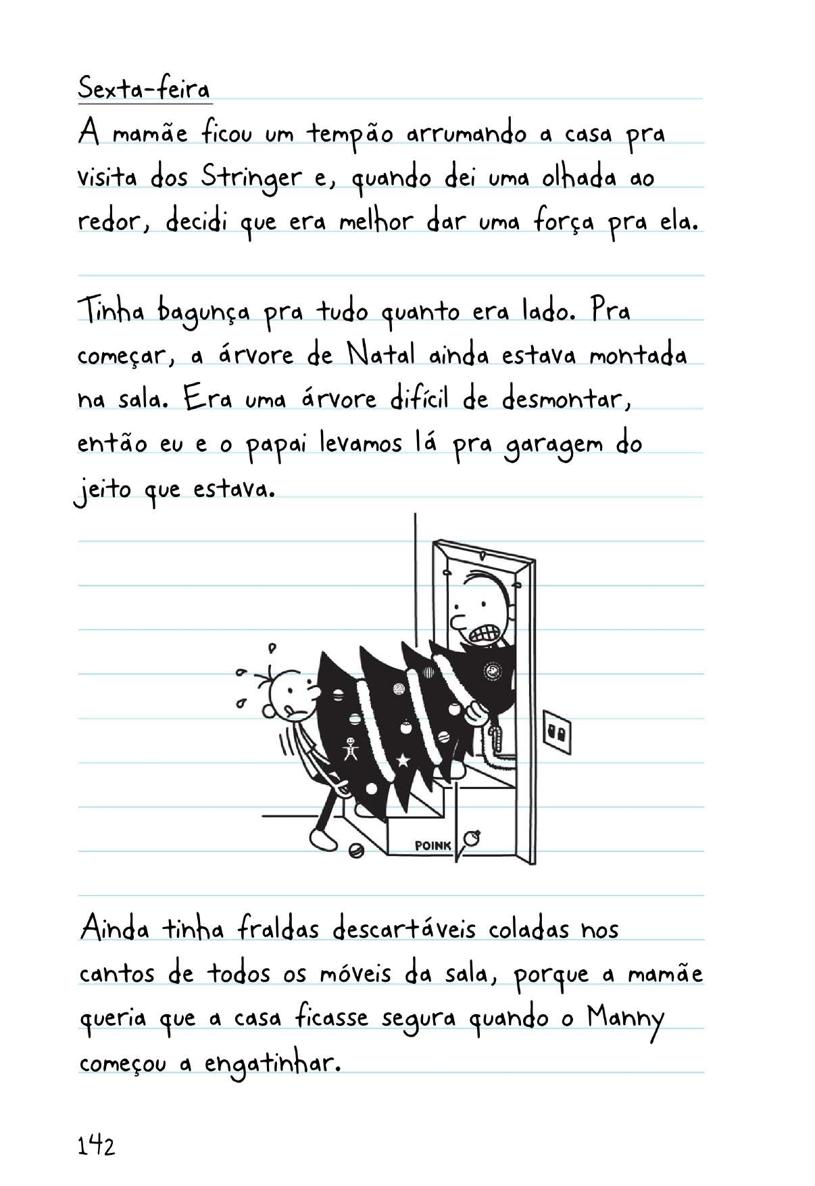 Sexta-feira
A mamãe ficou um tempão arrumando a casa pra
visita dos Stringer e, quando dei uma olhada ao
redor, decidi que era melhor dar uma força pra ela.
Tinha bagunça pra tudo quanto era lado. Pra
começar, a árvore de Natal ainda estava montada
na sala. Era uma árvore difícil de desmontar,
então eu e o papai levamos lá pra garagem do
jeito que estava.
POINK
Ainda tinha fraldas descartáveis coladas nos
cantos de todos os móveis da sala, porque a mamãe
queria que a casa ficasse segura quando o Manny
começou a engatinhar.
142